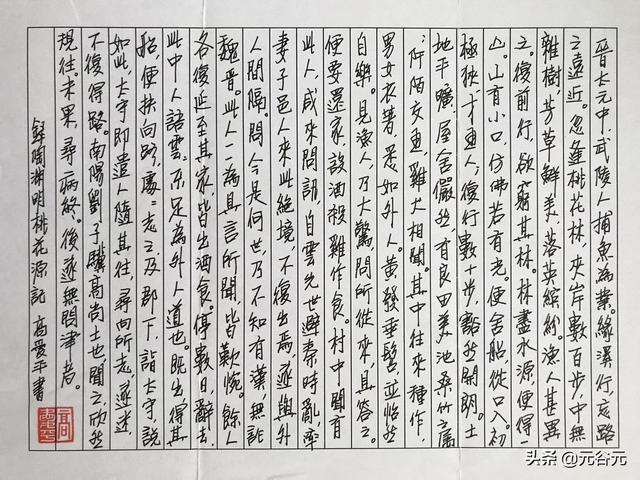 晉太元中,武陵人捕魚為業。緣溪行,忘路
之遠近。忽逢桃花林,夾岸數百步,中無
雜樹,芳草鮮美,落英繽紛。漁人甚異
之。復前行,欲窮其林。林盡水源,便得一
山。山有小口,仿佛若有光。便舍船,從口入。初
極狹,才通人。復行數十步,豁然開朗。土
地平曠,屋舍儼然,有良田美池桑竹之屬
。阡陌交通,雞犬相聞。其中往來種作,
男女衣著,悉如外人。黃發垂髫,並怡然
自樂。見漁人,乃大驚,問所從來。具答之。
便要還家,設酒殺雞作食。村中聞有
此人,咸來問訊。自雲先世避秦時亂,率
妻子邑人來此絕境,不復出焉,遂與外
人間隔。問今是何世,乃不知有漢,無論
魏晉。此人一一為具言所聞,皆歎惋。餘人
各復延至其家,皆出酒食。停數日,辭去。
此中人語雲:不足為外人道也。既出,得其
船,便扶向路,處處志之。及郡下,詣太守,說
如此。太守即遣人隨其往,尋向所志,遂迷,
不復得路。南陽劉子驥,高尚士也,聞之,欣然
規往。未果,尋病終。後遂無問津者。
錄陶淵明桃花源記 高愛平書
头条 @元谷元